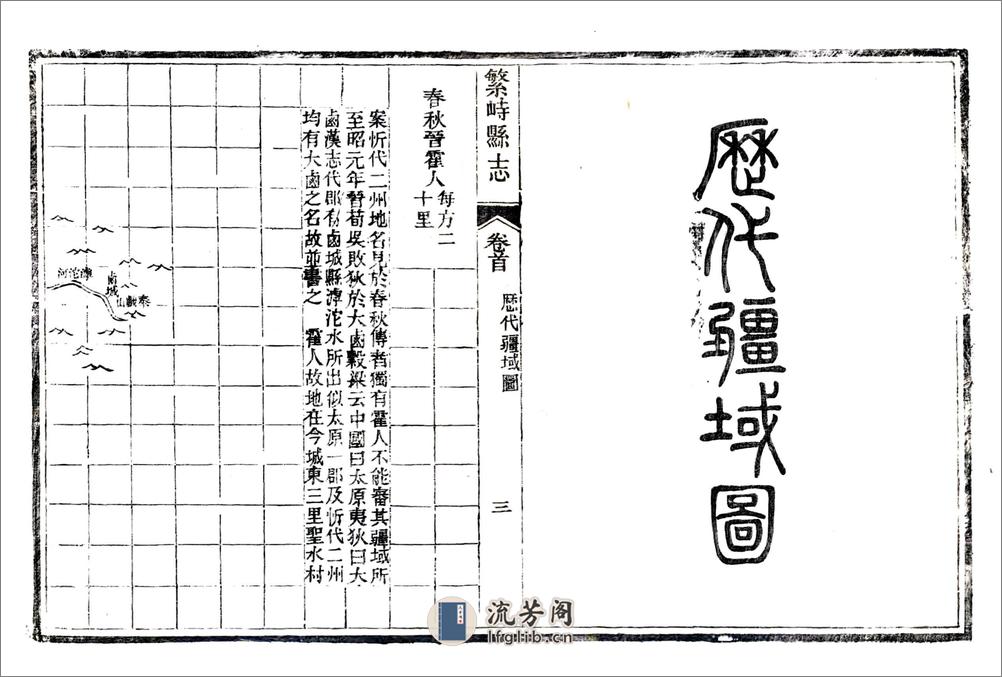 歷代疆域圖
繁峙縣志
卷首
歷代疆域圖
三
春秋晉霍人每方二
十里
案忻代二州地名見於春秋傳者獨有霍人不能審其疆域所
至昭元年晉荀吳敗狄於大鹵穀梁云中國曰太原夷狄曰大
鹵漢志代郡有鹵城縣滹沱水所出似太原一郡及忻代二州
均有大鹵之名故並書之　霍人故地在今城東三里聖水村
泰戲山
鹵城
滹沱河
流芳阁
lfglib.cn